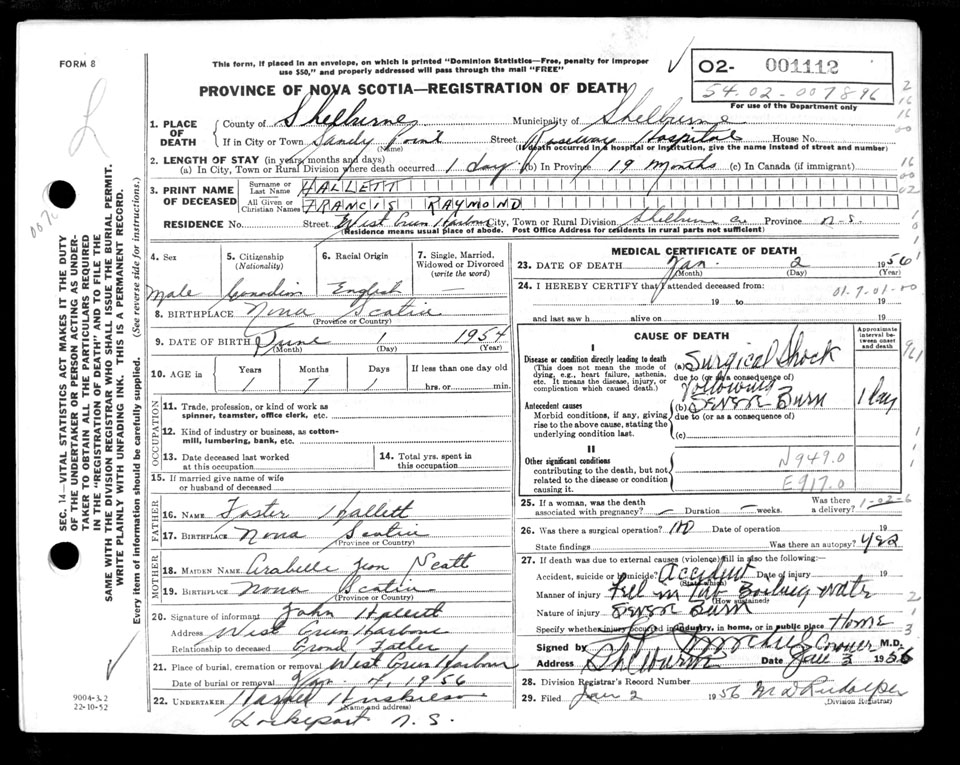 FORM 8
This form, if placed in an envelope, on which is printed "Dominion Statistics—Free, penalty for improper
use $50," and properly addressed will pass through the mail "FREE"
02- 001112
54.02-007896
For use of the Department only
PROVINCE OF NOVA SCOTIA—REGISTRATION OF DEATH
1. PLACE OF DEATH
County of Shelburne Municipality of Shelburne
If in City or Town Sandy Point Street Roseway Hospital House No.
(Name) (If death occurred in a hospital or institution, give the name instead of street and number)
2. LENGTH OF STAY (in years, months and days)
(a) In City, Town or Rural Division where death occurred 1 day (b) In Province 19 Months (c) In Canada (if immigrant)
3. PRINT NAME OF DECEASED
Surname or Last Name HALLETT
All Given or Christian Names FRANCIS RAYMOND
RESIDENCE No. Street West Green Harbour City, Town or Rural Division Shelburne Co. Province N.S.
(Residence means usual place of abode. Post Office Address for residents in rural parts not sufficient)
4. Sex Male
5. Citizenship (Nationality) Canadian
6. Racial Origin English
7. Single, Married, Widowed or Divorced (write the word) —
8. BIRTHPLACE Nova Scotia
(Province or Country)
9. DATE OF BIRTH June 1 1954
(Month) (Day) (Year)
10. AGE in Years Months Days If less than one day old
1 7 1 hrs. or min.
OCCUPATION
11. Trade, profession, or kind of work as spinner, teamster, office clerk, etc.
12. Kind of industry or business, as cotton-mill, lumbering, bank, etc.
13. Date deceased last worked at this occupation
14. Total yrs. spent in this occupation
15. If married give name of wife or husband of deceased
FATHER
16. NAME Foster Hallett
17. BIRTHPLACE Nova Scotia
(Province or Country)
MOTHER
18. MAIDEN NAME Arabelle Jean Scott
19. BIRTHPLACE Nova Scotia
(Province or Country)
20. Signature of informant John Hallett
Address West Green Harbour
Relationship to deceased Grand Father
21. Place of burial, cremation or removal West Green Harbour
Date of burial or removal Jan. 4, 1956
22. UNDERTAKER Harold
(Name and address)
Lockeport N.S.
MEDICAL CERTIFICATE OF DEATH
23. DATE OF DEATH Jan. 2 1956
(Month) (Day) (Year)
24. I HEREBY CERTIFY that I attended deceased from:
01-7-01-00
19 to 19
and last saw h alive on 19
CAUSE OF DEATH
Approximate interval between onset and death
I
Disease or condition directly leading to death
(This does not mean the mode of dying, e.g., heart failure, asthenia, etc. It means the disease, injury, or complication which caused death.)
(a) Surgical Shock
due to (or as a consequence of)
following
Antecedent causes
Morbid conditions, if any, giving rise to the above cause, stating the underlying condition last.
(b) Severe Burn 1 Day
due to (or as a consequence of)
(c)
II
Other significant conditions
contributing to the death, but not related to the disease or condition causing it.
N949.0
E917.0
25. If a woman, was the death associated with pregnancy? — Duration — weeks. Was there a delivery? 1-02-6
26. Was there a surgical operation? No Date of operation 19
State findings Was there an autopsy? Yes
27. If death was due to external causes (violence) fill in also the following:
Accident, suicide or homicide? Accident Date of injury 19
(State which)
Manner of injury Fell in Tub Boiling water
(How sustained)
Nature of injury Severe Burn
Specify whether injury occurred in industry, in home, or in public place Home
Signed by Coroner M.D.
Address Shelburne Date Jan 3 1956
28. Division Registrar's Record Number
29. Filed Jan 2 1956
(Division Registrar)
SEC. 14—VITAL STATISTICS ACT MAKES IT THE DUTY
OF THE UNDERTAKER OR PERSON ACTING AS UNDER-
TAKER TO OBTAIN ALL THE PARTICULARS REQUIRED
IN THE "REGISTRATION OF DEATH" AND TO FILE THE
SAME WITH THE DIVISION REGISTRAR WHO SHALL ISSUE THE BURIAL PERMIT.
WRITE PLAINLY WITH UNFADING INK. THIS IS A PERMANENT RECORD.
Every item of information should be carefully supplied. (See reverse side for instructions.)
9004-3.2
22-10-52